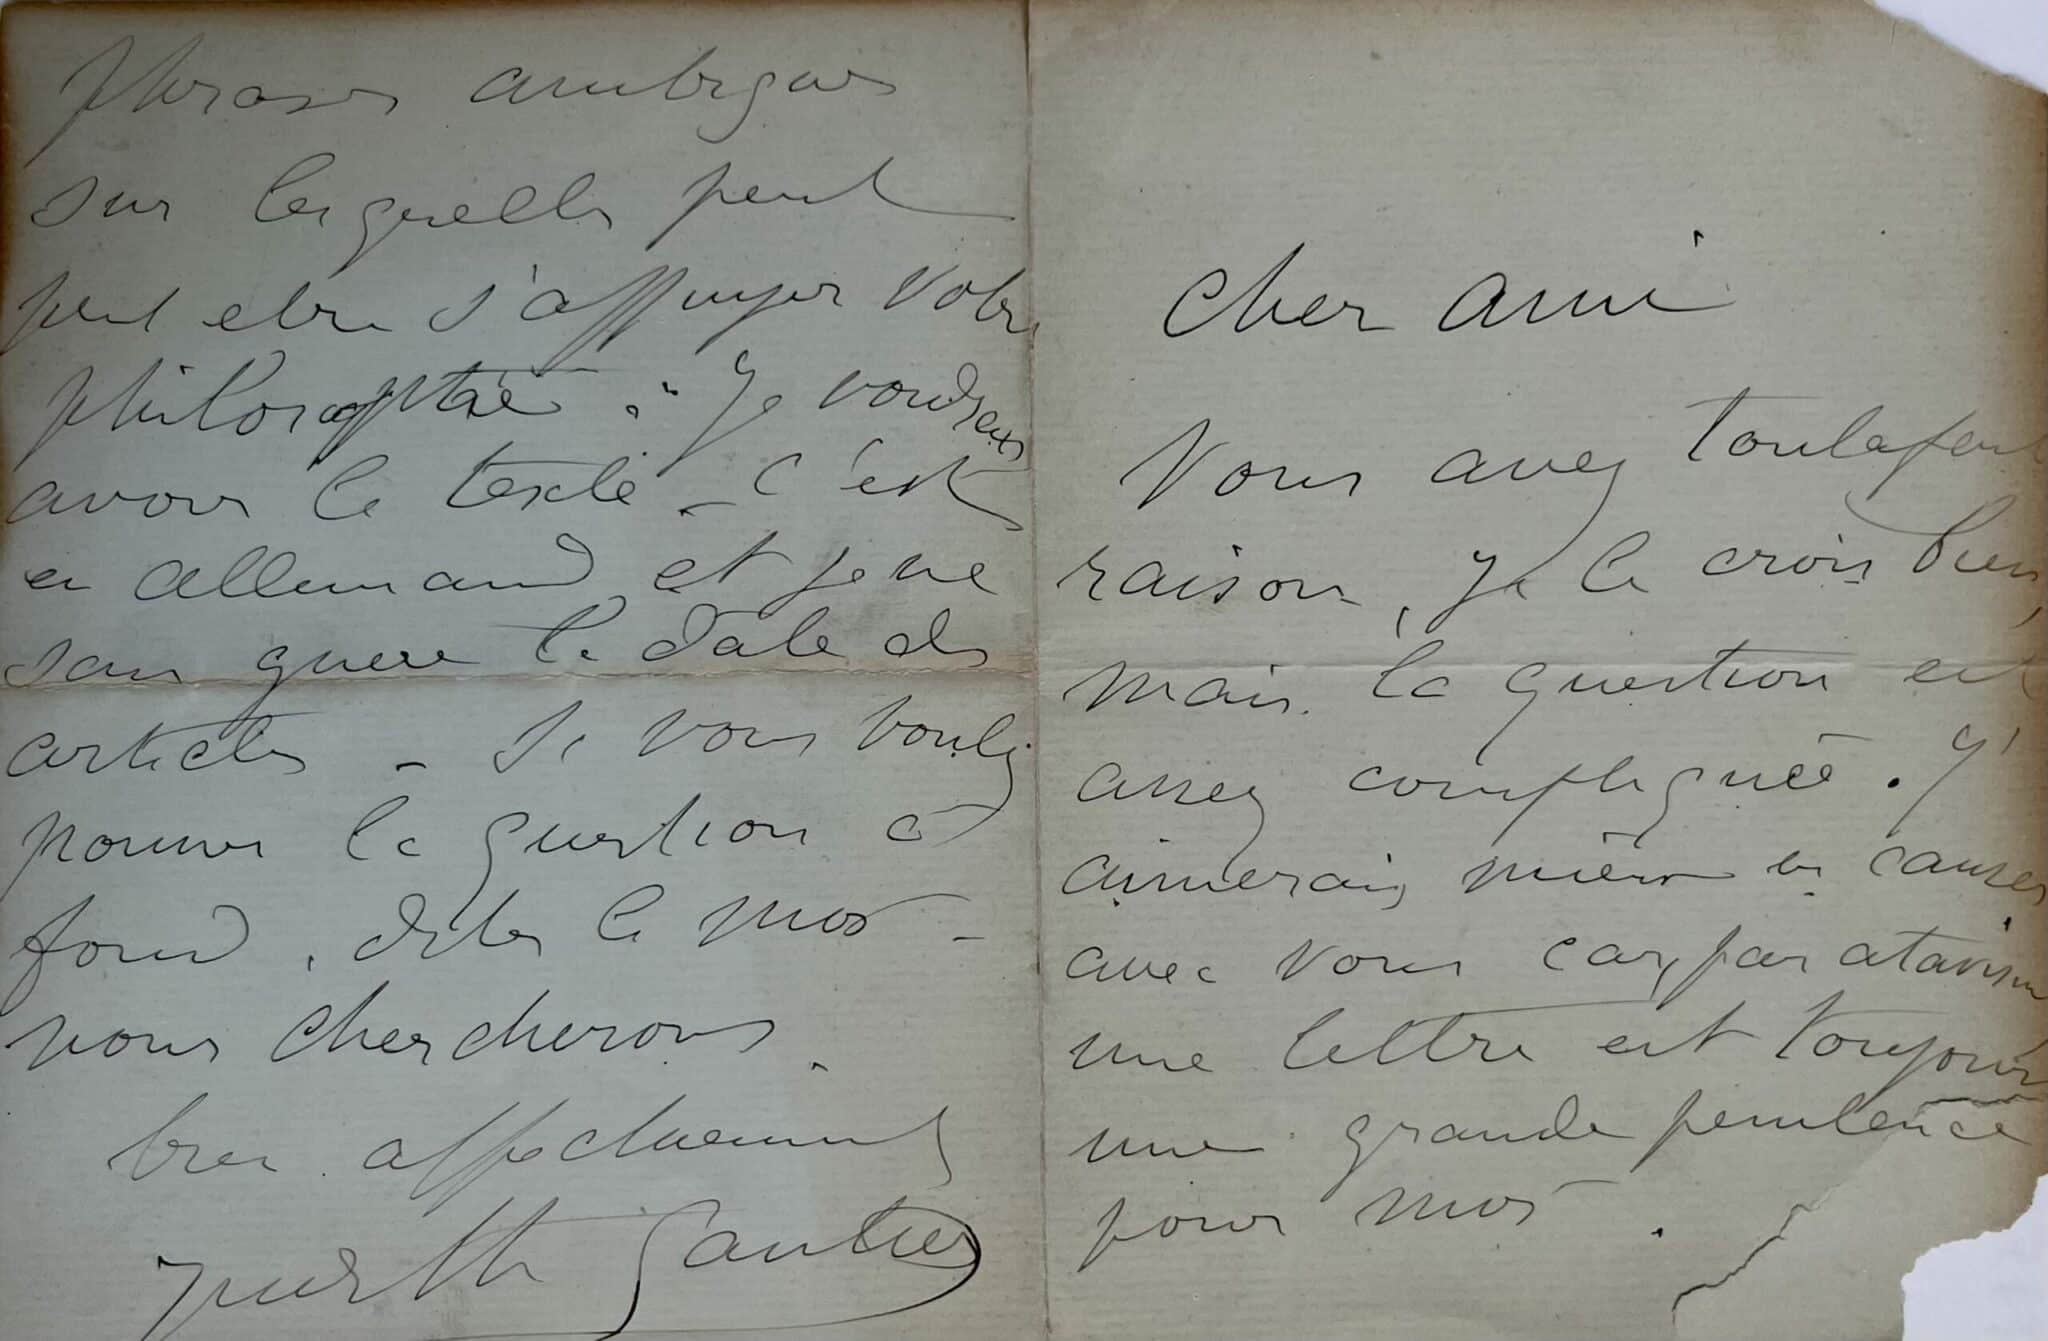 Cher ami
Vous avez toutafait
raison, je le crois bien,
mais la question est
assez compliquée. J'
aimerais mieux en causer
avec vous car, par atavisme
une lettre est toujours
une grande penitence
pour moi.
phrases ambigues
sur lesquelles peut
peut etre s'appuyer votre
philosophie. " Je voudrais
avoir le texte - c'est
en allemand et je ne
sais guere la date des
articles - Si vous voulez
pousser la question à
fond, dites le moi -
nous chercherons.
bien affectueusement
Judith Gautier